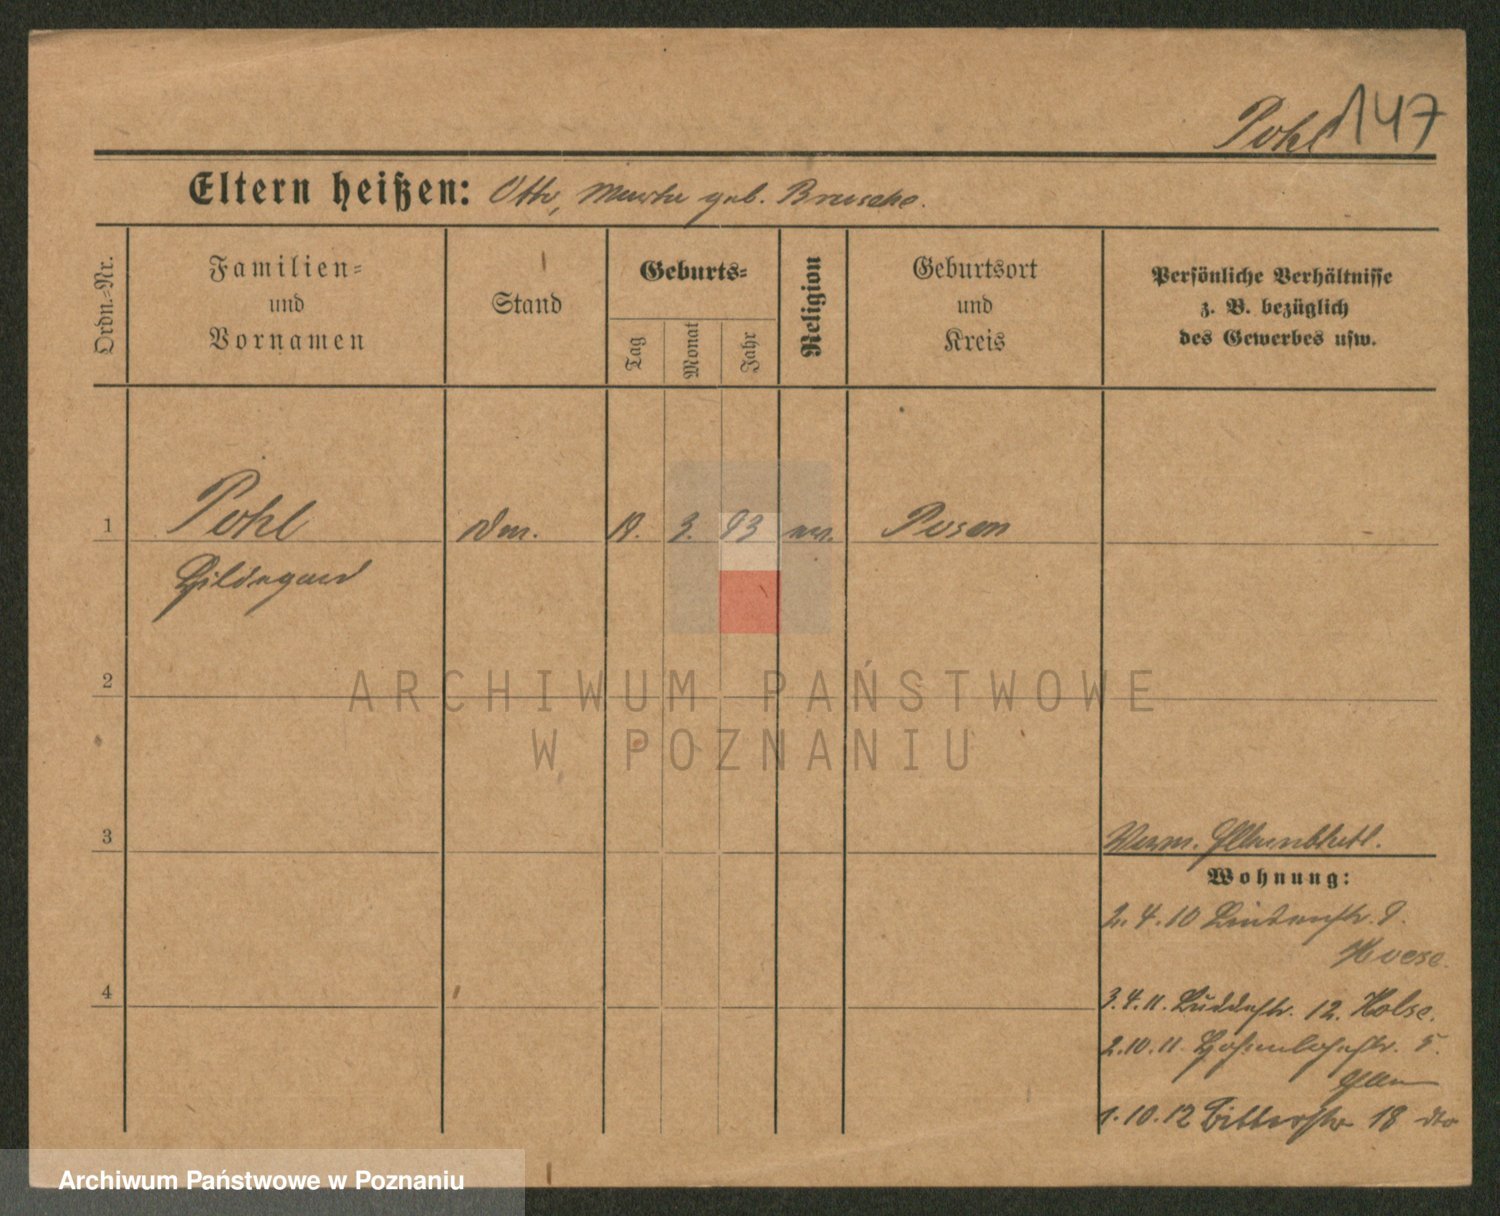 Pohl 147
Eltern heißen: Otto, Martha geb. Brusche.
Ordn.=Nr.
Familien=
und
Vornamen
Stand
Geburts=
Tag
Monat
Jahr
Religion
Geburtsort
und
Kreis
Persönliche Verhältnisse
z. B. bezüglich
des Gewerbes usw.
1
Pohl
Hildegard
3. 93
ev.
Posen
2
ARCHIWUM PAŃSTWOWE
W POZNANIU
3
Wohnung:
2.4.10 Lindenstr. 9.
4
3.4.11. 12.
2.10.11. Hohenlohestr. 5.
1.10.12 Ritterstr 18 dto
Archiwum Państwowe w Poznaniu